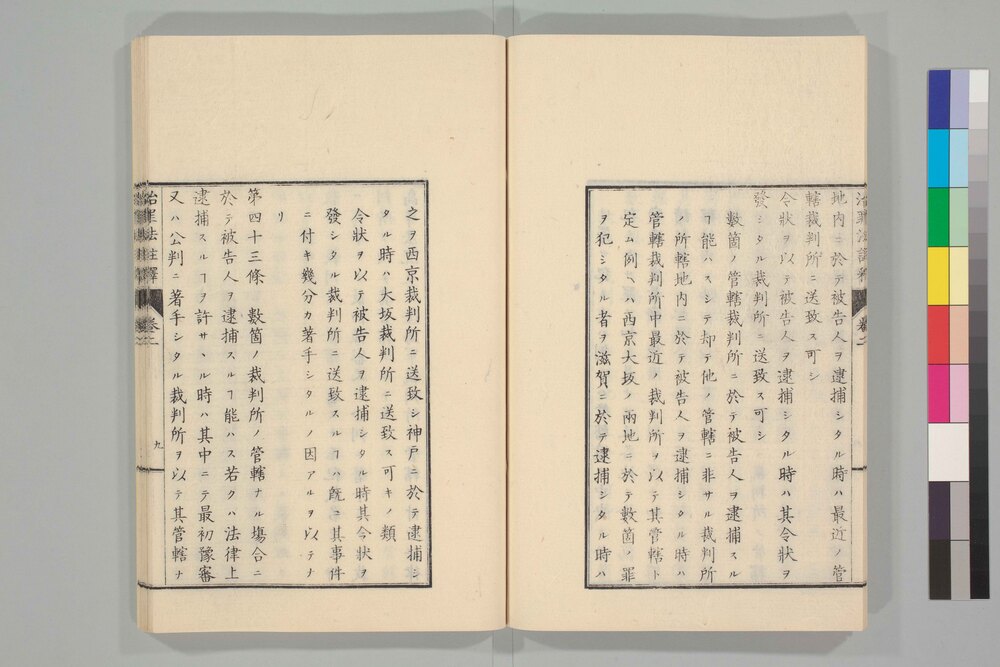 地內ニ於テ被告人ヲ逮捕シタル時ハ最近ノ管
轄裁判所ニ送致ス可シ
令狀ヲ以テ被告人ヲ逮捕シタル時ハ其令狀ヲ
發シタル裁判所ニ送致ス可シ
數箇ノ管轄裁判所ニ於テ被告人ヲ逮捕スル
ヿ能ハスシテ却テ他ノ管轄ニ非サル裁判所
ノ所轄地內ニ於テ被告人ヲ逮捕シタル時ハ
管轄裁判所中最近ノ裁判所ヲ以テ其管轄ト
定ム例ヘハ西京大坂ノ兩地ニ於テ數箇ノ罪
ヲ犯シタル者ヲ滋賀ニ於テ逮捕シタル時ハ
之ヲ西京裁判所ニ送致シ神戸ニ於テ逮捕シ
タル時ハ大坂裁判所ニ送致ス可キノ類
令狀ヲ以テ被告人ヲ逮捕シタル時其令狀ヲ
發シタル裁判所ニ送致スルヿハ既ニ其事件
ニ付キ幾分カ著手シタルノ因アルヲ以テナ
リ
第四十三條 數箇ノ裁判所ノ管轄ナル塲合ニ
於テ被告人ヲ逮捕スルヿ能ハス若クハ法律上
逮捕スルヿヲ許サヽル時ハ其中ニテ最初豫審
又ハ公判ニ著手シタル裁判所ヲ以テ其管轄ナ
治罪法註釋 卷二 九